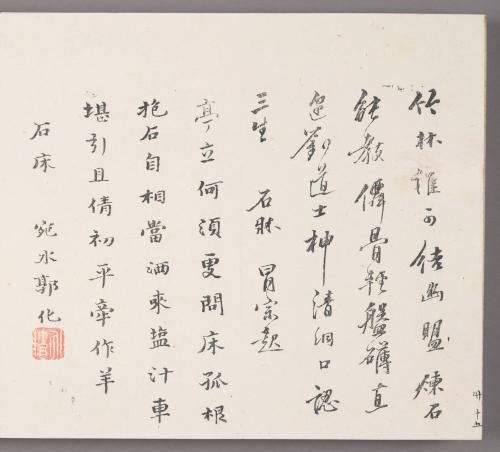 竹林誰可結幽盟煉石
能教儒骨輕盤礴直
追劉道士神清洞口認
三生 石牀 冒宗起
亭立何須更問床孤根
抱石自相當酒乘鹽汁車
堪引且倩初平牽作羊
石床 宛水郭化